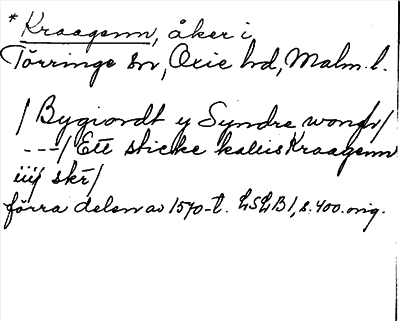 * Kraagenn, åker i
Törringe sn, Oxie hd, Malm. l.
/ Bygiordt y Syndre wongh/
---/ Ett sticke kallis Kraagenn
iiij skr/
förra delen av 1570-t. LSLB1, s. 400. orig.